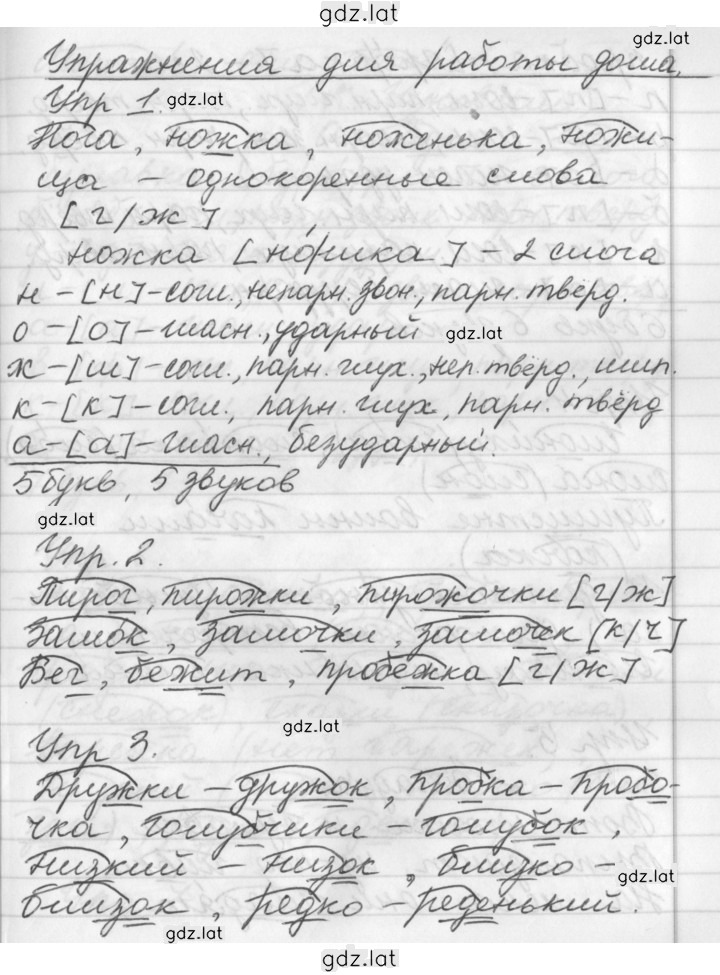 gdz.lat
gdz.lat
Упражнения для работы дома.
Упр 1. gdz.lat
Нога, ножка, ноженька, ножи-
ща – однокоренные слова
[г/ж]
ножка [но́шка] – 2 слога
н – [н] – согл., непарн. звон., парн. твёрд.
о – [о] – гласн., ударный gdz.lat
ж – [ш] – согл., парн. глух., неп. твёрд., шип.
к – [к] – согл., парн. глух, парн. твёрд
а – [а] – гласн., безударный.
5 букв, 5 звуков
gdz.lat
Упр. 2.
Пирог, пирожки, пирожочки [г/ж]
Замок, замочки, замочек [к/ч]
Бег, бежит, пробежка [г/ж]
gdz.lat
Упр 3.
Дружки – дружок, пробка – пробо-
чка, голубчики – голубок,
низкий – низок, близко –
gdz.lat
близок, редко – реденький.
gdz.lat
gdz.lat